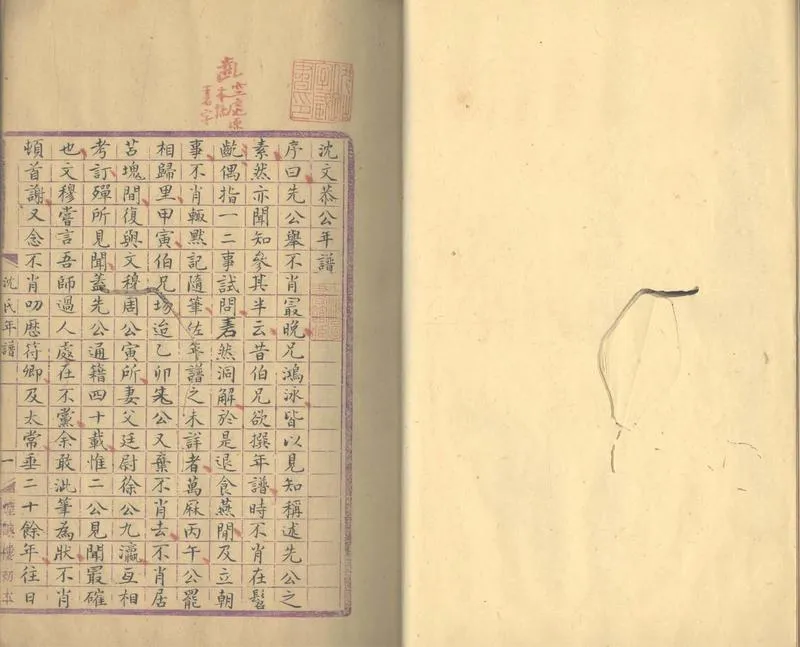 沈文恭公年譜
序曰先公舉不肖㝡晚兄鴻泳皆以見知稱述先公之
素然亦聞知參其半云昔伯兄欲撰年譜時不肖在髫
齔偶指一二事試問砉然洞解於是退食燕閒及立朝
事不肖輙黙記隨筆佐年譜之未詳者萬厤丙午公罷
相歸里甲寅伯兄迨乙卯先公又棄不肖去不肖居
苫塊間復與文穆周公寅所妻父廷尉徐公九瀛互相
考訂殫所見聞蓋先公通籍四十載惟二公見聞㝡確
也文穆嘗言吾師過人處在不黨余敢泚筆為狀不肖
頓首謝又念不肖叨歴符卿及太常垂二十餘年往日
沈氏年譜
一
煙嶼樓初本